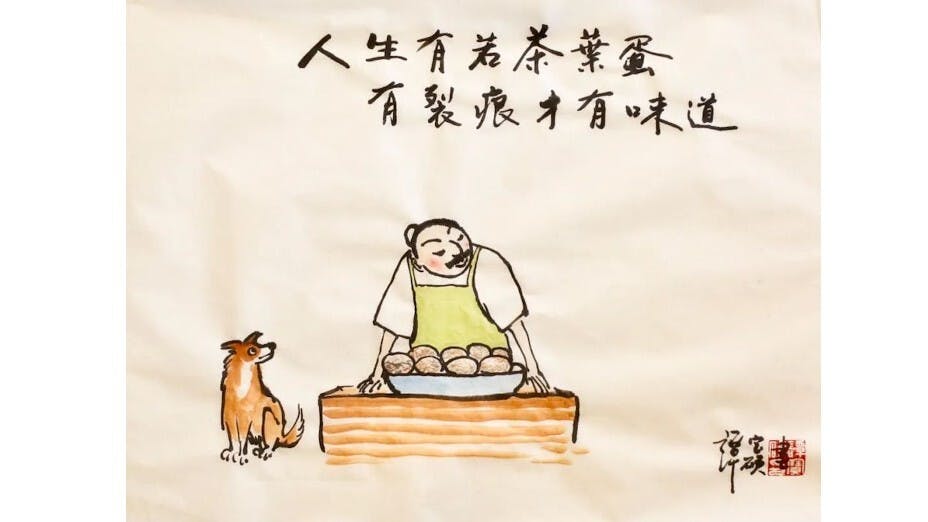 人生有若茶葉蛋
有裂痕才有味道